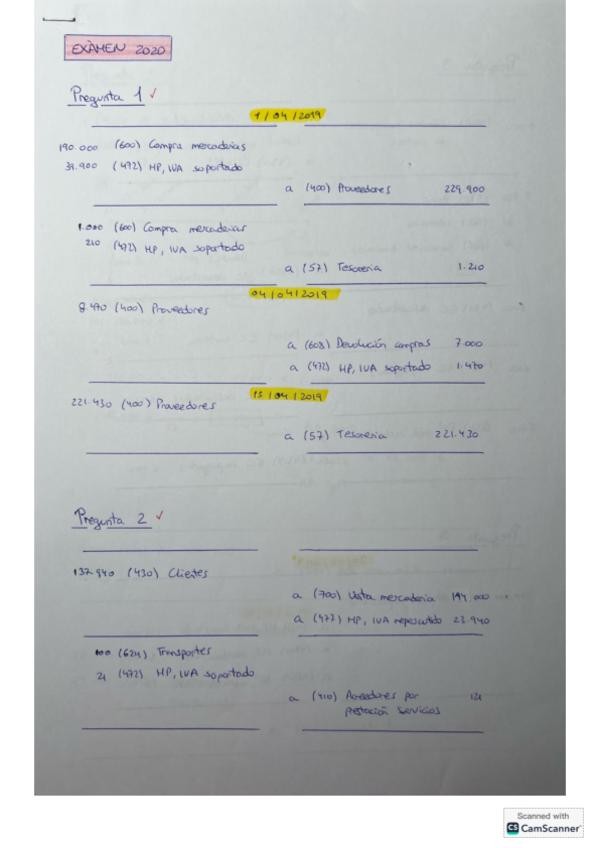 EXÀMEN 2020
Pregunta 1 ✓
1/04/2019
190.000 (600) Compra mercaderias
39.900 (472) HP, IVA soportado
a (400) Proveedores 229.900
1.000 (600) Compra mercaderias
210 (472) HP, IVA soportado
a (57) Tesoreria 1.210
04/04/2019
8.470 (400) Proveedores
a (608) Devolución compras 7.000
a (472) HP, IVA soportado 1.470
15/04/2019
221.430 (400) Proveedores
a (57) Tesoreria 221.430
Pregunta 2 ✓
137.940 (430) Clientes
a (700) Venta mercaderia 114.000
a (477) HP, IVA repercutido 23.940
100 (624) Transportes
21 (472) HP, IVA soportado
a (410) Acreedores por 121
prestación servicios
Scanned with
CS CamScanner